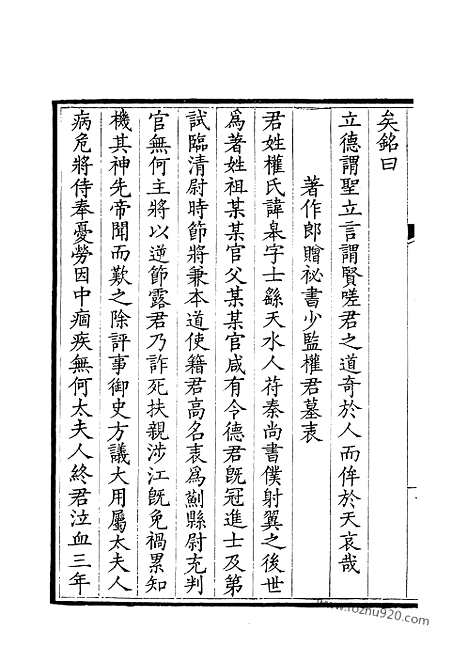 矣銘曰
立德謂聖立言謂賢嗟君之道奇於人而侔於天哀哉
著作郎贈祕書少監權君墓表
君姓權氏諱皋字士繇天水人苻秦尚書僕射翼之後世
為著姓祖某某官父某某官咸有令德君既冠進士及第
試臨清尉時節將兼本道使籍君高名表為薊縣尉充判
官無何主將以逆節露君乃詐死扶親涉江既免禍累知
機其神先帝聞而歎之除評事御史方議大用屬太夫人
病危將侍奉憂勞因中痼疾無何太夫人終君泣血三年
www.fozhu920.com